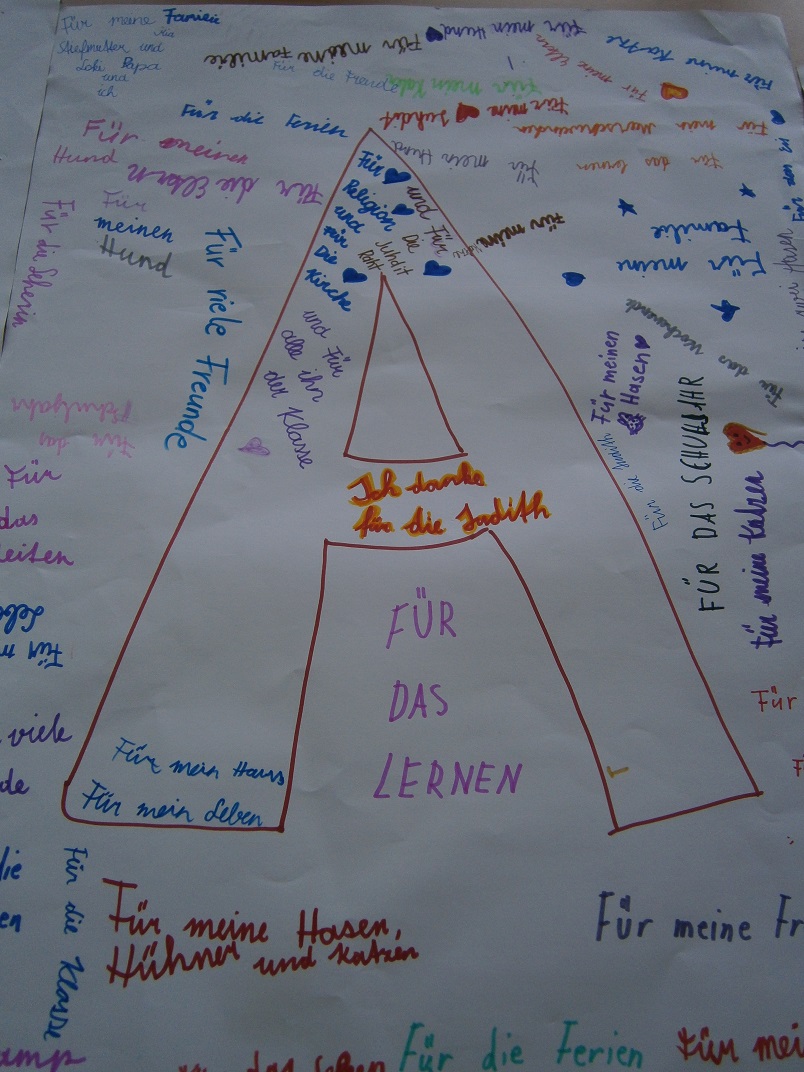 Für meine Familie
Stiefmutter und
Papa
und
ich
Für meine Familie
Für mein Hund
Für meine Katze
Für meine Eltern
Für die Freude
Für mein
Für die Ferien
Für mein Meerschweinchen
Für das lernen
Für mein Hund
Für meinen
Hund
Für die Eltern
Für
meinen
Hund
Für viele Freunde
Für
Religion
und
für
Die
Kirche
und Für
Die
Juhdit
und Für
alle ihn
der Klasse
Für mein
Für meine
Familie
Für das Wochenende
Für meinen
Hasen
FÜR DAS SCHUHJAHR
Für meine Katzen
Für die Judith
Ich danke
für die Judith
FÜR
DAS
LERNEN
Für mein Haus
Für mein Leben
Für das
Für
das
Für
viele
die
Für die Klasse
Für meine Hasen,
Hühner und Katzen
Für meine Fr
das Leben
Für die Ferien
Für mei